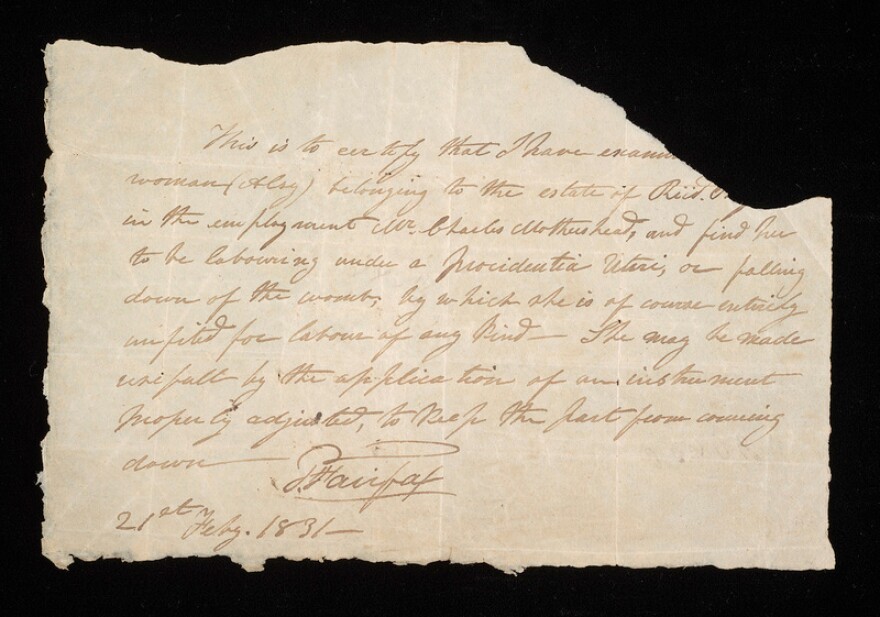 This is to certify that I have exam
woman (Alsy) belonging to the estate of Rich'd.
in the employment Mr. Charles Mothershead, and find her
to be labouring under a procidentia Uteri, or falling
down of the womb, by which she is of course entirely
unfited for labour of any kind — She may be made
usefull by the application of an instrument
properly adjusted, to keep the part from coming
down —
Fairfax
21st Feby. 1831 —